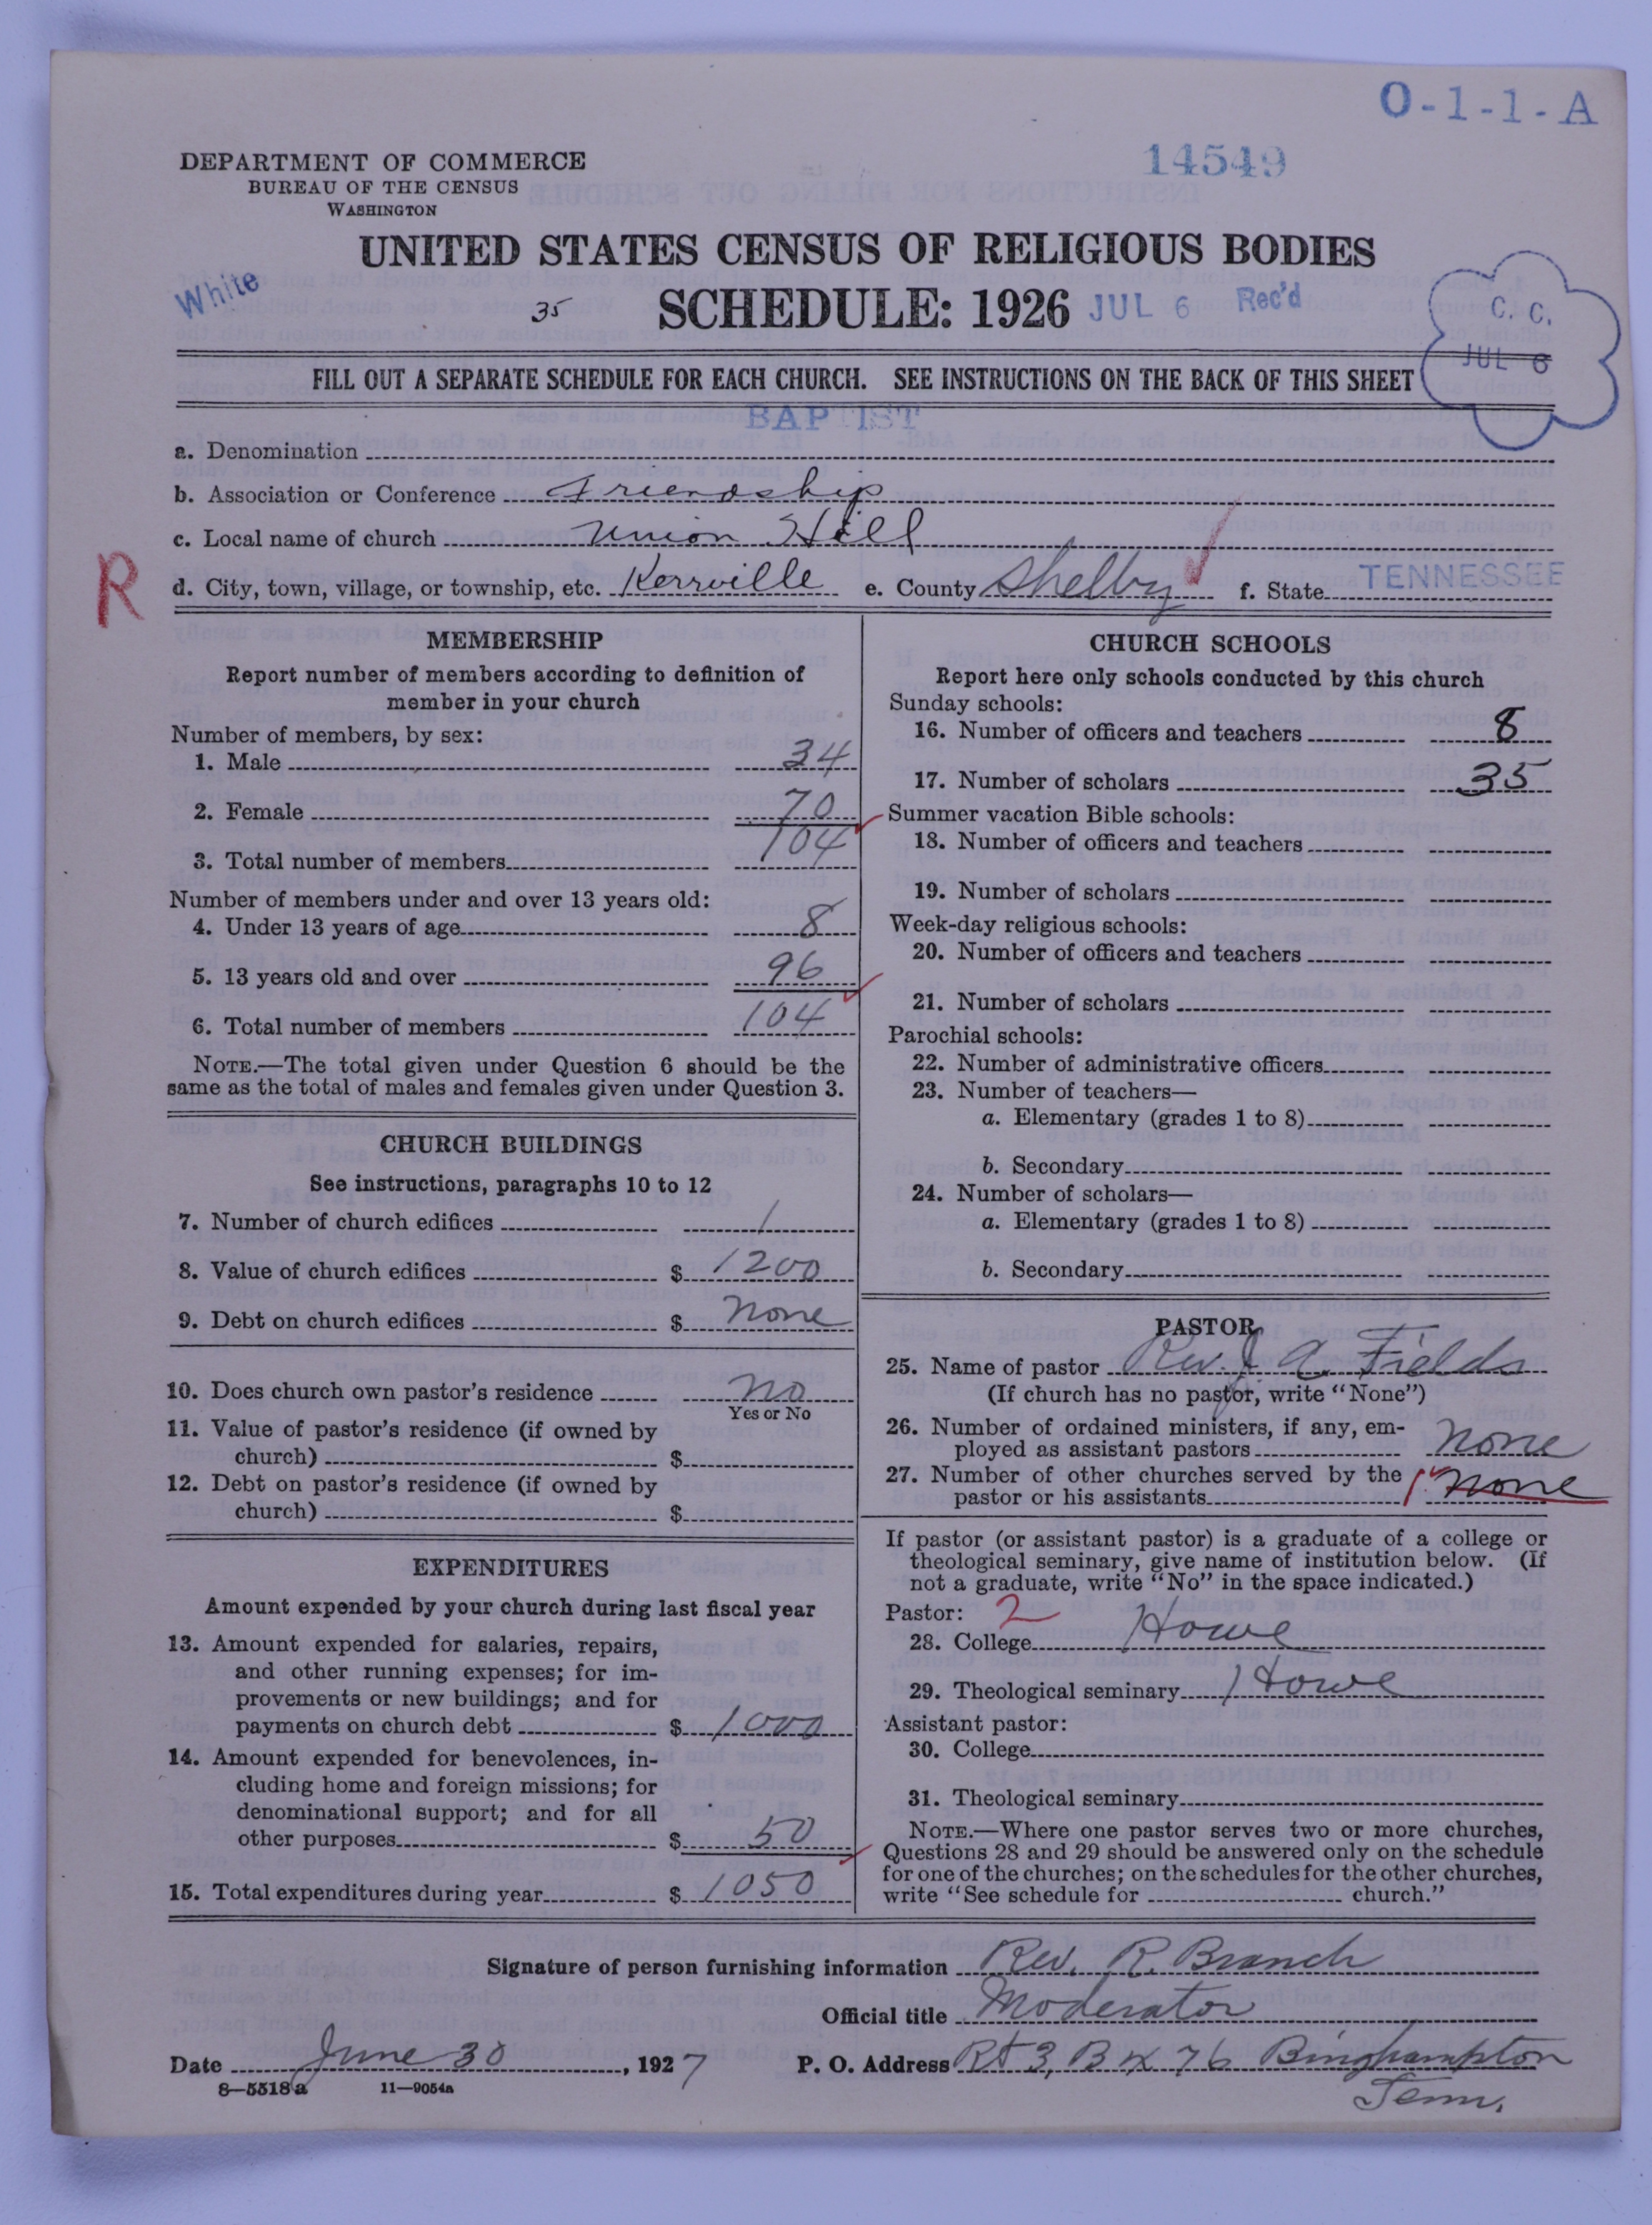 O-1-1-A
14549
DEPARTMENT OF COMMERCE
BUREAU OF THE CENSUS
WASHINGTON
UNITED STATES CENSUS OF RELIGIOUS BODIES
White
35
SCHEDULE: 1926
JUL 6 Rec'd
C. C.
JUL 6
FILL OUT A SEPARATE SCHEDULE FOR EACH CHURCH. SEE INSTRUCTIONS ON THE BACK OF THIS SHEET
BAPTIST
a. Denomination
b. Association or Conference Friendship
c. Local name of church Union Hill
R
d. City, town, village, or township, etc. Kerrville e. County Shelby f. State TENNESSEE
MEMBERSHIP
Report number of members according to definition of
member in your church
Number of members, by sex:
1. Male 34
2. Female 70
3. Total number of members 104
Number of members under and over 13 years old:
4. Under 13 years of age 8
5. 13 years old and over 96
6. Total number of members 104
NOTE.—The total given under Question 6 should be the
same as the total of males and females given under Question 3.
CHURCH BUILDINGS
See instructions, paragraphs 10 to 12
7. Number of church edifices 1
8. Value of church edifices $ 1200
9. Debt on church edifices $ none
10. Does church own pastor's residence no
Yes or No
11. Value of pastor's residence (if owned by
church) $
12. Debt on pastor's residence (if owned by
church) $
EXPENDITURES
Amount expended by your church during last fiscal year
13. Amount expended for salaries, repairs,
and other running expenses; for im-
provements or new buildings; and for
payments on church debt $ 1000
14. Amount expended for benevolences, in-
cluding home and foreign missions; for
denominational support; and for all
other purposes $ 50
15. Total expenditures during year $ 1050
CHURCH SCHOOLS
Report here only schools conducted by this church
Sunday schools:
16. Number of officers and teachers 8
17. Number of scholars 35
Summer vacation Bible schools:
18. Number of officers and teachers
19. Number of scholars
Week-day religious schools:
20. Number of officers and teachers
21. Number of scholars
Parochial schools:
22. Number of administrative officers
23. Number of teachers—
a. Elementary (grades 1 to 8)
b. Secondary
24. Number of scholars—
a. Elementary (grades 1 to 8)
b. Secondary
PASTOR
25. Name of pastor Rev. J. A. Fields
(If church has no pastor, write "None")
26. Number of ordained ministers, if any, em-
ployed as assistant pastors none
27. Number of other churches served by the
pastor or his assistants 1 none
If pastor (or assistant pastor) is a graduate of a college or
theological seminary, give name of institution below. (If
not a graduate, write "No" in the space indicated.)
Pastor: 2
28. College Howe
29. Theological seminary Howe
Assistant pastor:
30. College
31. Theological seminary
NOTE.—Where one pastor serves two or more churches,
Questions 28 and 29 should be answered only on the schedule
for one of the churches; on the schedules for the other churches,
write "See schedule for church."
Signature of person furnishing information Rev. R. Branch
Official title Moderator
Date June 30, 1927 P. O. Address Rt 3, Bx 76 Binghampton
Tenn.
8—5518a 11—9054a